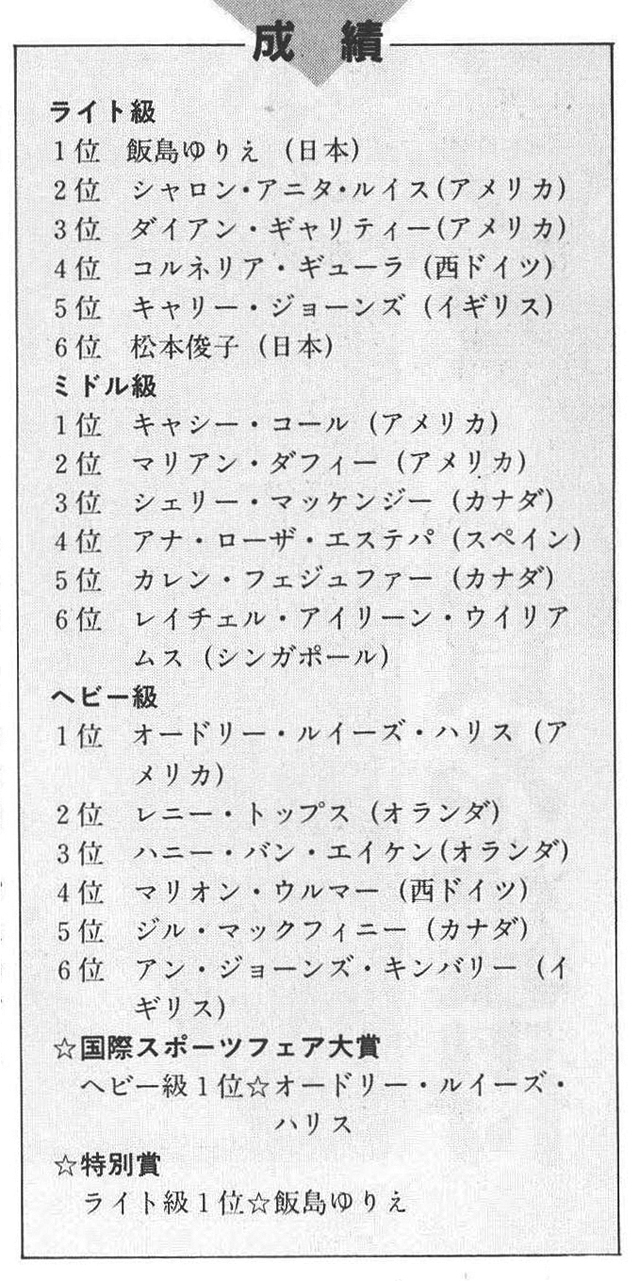 成績
ライト級
1位 飯島ゆりえ (日本)
2位 シャロン・アニタ・ルイス(アメリカ)
3位 ダイアン・ギャリティー(アメリカ)
4位 コルネリア・ギューラ (西ドイツ)
5位 キャリー・ジョーンズ (イギリス)
6位 松本俊子 (日本)
ミドル級
1位 キャシー・コール (アメリカ)
2位 マリアン・ダフィー (アメリカ)
3位 シェリー・マッケンジー (カナダ)
4位 アナ・ローザ・エステパ (スペイン)
5位 カレン・フェジュファー (カナダ)
6位 レイチェル・アイリーン・ウイリア
ムス (シンガポール)
ヘビー級
1位 オードリー・ルイーズ・ハリス (ア
メリカ)
2位 レニー・トップス (オランダ)
3位 ハニー・バン・エイケン(オランダ)
4位 マリオン・ウルマー (西ドイツ)
5位 ジル・マックフィニー (カナダ)
6位 アン・ジョーンズ・キンバリー (イ
ギリス)
☆国際スポーツフェア大賞
ヘビー級1位☆オードリー・ルイーズ・
ハリス
☆特別賞
ライト級1位☆飯島ゆりえ